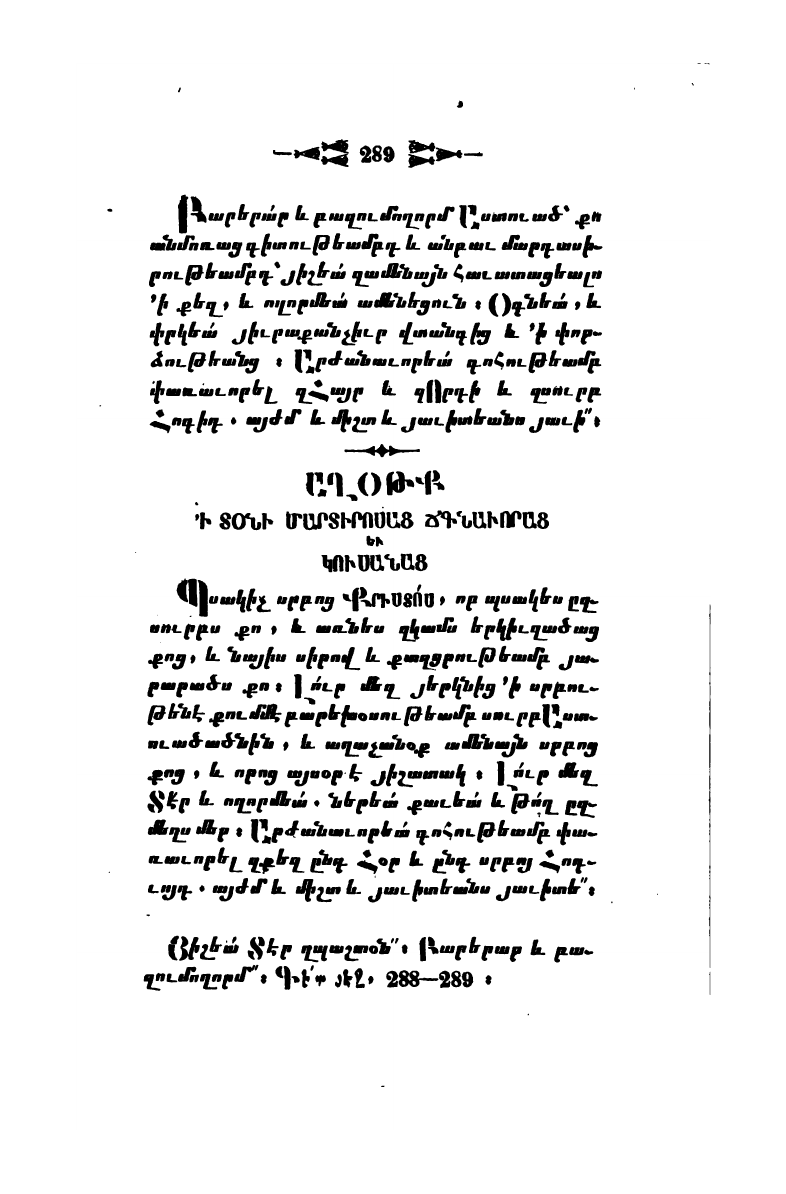 289
Բարերա՛ր և բազումողորմ Աստուած՝ քո
անմոռաց գիտութեամբդ և անբաւ մարդասի-
րութեամբդ՝ յիշեա՛ զամենայն հաւատացեալս
՚ի քեզ, և ողորմեա՛ ամենեցուն։ Օգնեա՛, և
փրկեա՛ յիւրաքանչիւր վտանգից և ՚ի փոր-
ձութեանց։ Արժանաւորեա՛ գոհութեամբ
փառաւորել զՀայր և զՈրդի և զսուրբ
Հոգիդ. այժմ և միշտ և յաւիտեանս յաւի՞։
ԱՂՕԹՔ
՚Ի ՏՕՆԻ ՄԱՐՏԻՐՈՍԱՑ ՃԳՆԱՒՈՐԱՑ
ԵՒ
ԿՈՒՍԱՆԱՑ
Պսակիչ սրբոց ՔՐԻՍՏՈ՛Ս, որ պսակես ըզ-
սուրբս քո, և առնես զկամս երկիւղածաց
քոց, և նայիս սիրով և քաղցրութեամբ յա-
րարածս քո։ Լո՛ւր մեզ յերկնից ՚ի սրբու-
թենէ քումմէ բարեխօսութեամբ սուրբ Աստ-
ուածածնին, և աղաչանօք ամենայն սրբոց
քոց, և որոց այսօր է յիշատակ։ Լո՛ւր մեզ
Տէր և ողորմեա՛. ներեա՛ քաւեա՛ և թո՛ղ ըզ-
մեղս մեր։ Արժանաւորեա՛ գոհութեամբ փա-
ռաւորել զքեզ ընդ Հօր և ընդ սրբոյ Հոգ-
ւոյդ. այժմ և միշտ և յաւիտեանս յաւիտե՞։
Յիշեա՛ Տէր զպաշտօն՞։ Բարերար և բա-
զումողորմ՞։ Գի՛տ յէջ, 288—289։